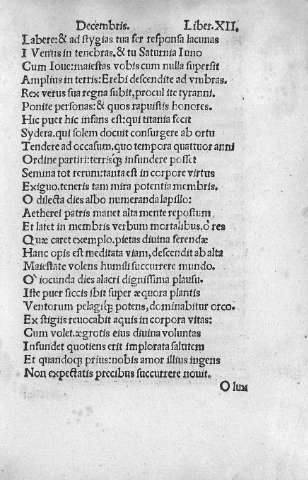 Decembris. Liber. XII.
Labere: & ad stygias tua fer responsa lacunas
I Venus in tenebras. & tu Saturnia Iuno
Cum Ioue: maiestas vobis cum nulla supersit
Amplius in terris: Erebi descendite ad vmbras.
Rex verus sua regna subit, procul ite tyranni.
Ponite personas: & quos rapuistis honores.
Hic puer hic infans est: qui titania fecit
Sydera. qui solem docuit consurgere ab ortu
Tendere ad occasum. quo tempora quattuor anni
Ordine partiri: terrisq; infundere posset
Semina tot rerum: tanta est in corpore virtus
Exiguo. teneris tam mira potentia membris.
O dilecta dies albo numeranda lapillo:
Aetherei patris manet alta mente repostum
Et latet in membris verbum mortalibus. o res
Quæ caret exemplo. pietas diuina ferendæ
Hanc opis est meditata viam, descendit ab alta
Maiestate volens humili succurrere mundo.
O iocunda dies alacri dignissima plausu.
Iste puer siccis ibit super æquora plantis
Ventorum pelagiq; potens, dominabitur orco.
Ex stigiis reuocabit aquis in corpora vitas:
Cum volet. ægrotis eius diuina voluntas
Infundet quotiens erit implorata salutem
Et quandoq; prius: nobis amor illius ingens
Non expectatis precibus succurrere nouit.
O lux